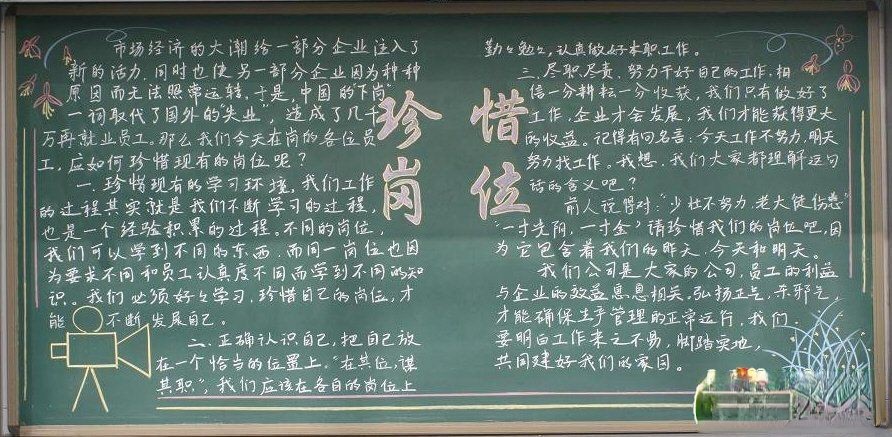 珍惜
岗位
市场经济的大潮给一部分企业注入了
新的活力.同时也使另一部分企业因为种种
原因而无法照常运转,于是,中国的“下岗”
一词取代了国外的“失业”,造成了几千
万再就业员工。那么我们今天在岗的各位员
工,应如何珍惜现有的岗位呢?
一.珍惜现有的学习环境,我们工作
的过程其实就是我们不断学习的过程,
也是一个经验积累的过程。不同的岗位,
我们可以学到不同的东西.而同一岗位也因
为要求不同和员工认真度不同而学到不同的知
识.。我们必须好々学习.珍惜自己的岗位,才
能不断发展自己。
二.正确认识自己,把自己放
在一个恰当的位置上.“在其位,谋
其职”,我们应该在各自的岗位上
勤々勉々,认真做好本职工作。
三.尽职尽责.努力干好自己的工作,相
信一分耕耘一分收获,我们只有做好了
工作,企业才会发展,我们才能获得更大
的收益。记得有句名言:今天工作不努力,明天
努力找工作。我想.我们大家都理解这句
话的含义吧?
前人说得对:“少壮不努力.老大徒伤悲”
“一寸光阴,一寸金”请珍惜我们的岗位吧,因
为它包含着我们的昨天.今天和明天。
我们公司是大家的公司,员工的利益
与企业的效益息息相关,弘扬正气,杀邪气,
才能确保生产管理的正常运行,我们
要明白工作来之不易,脚踏实地,
共同建好我们的家园。